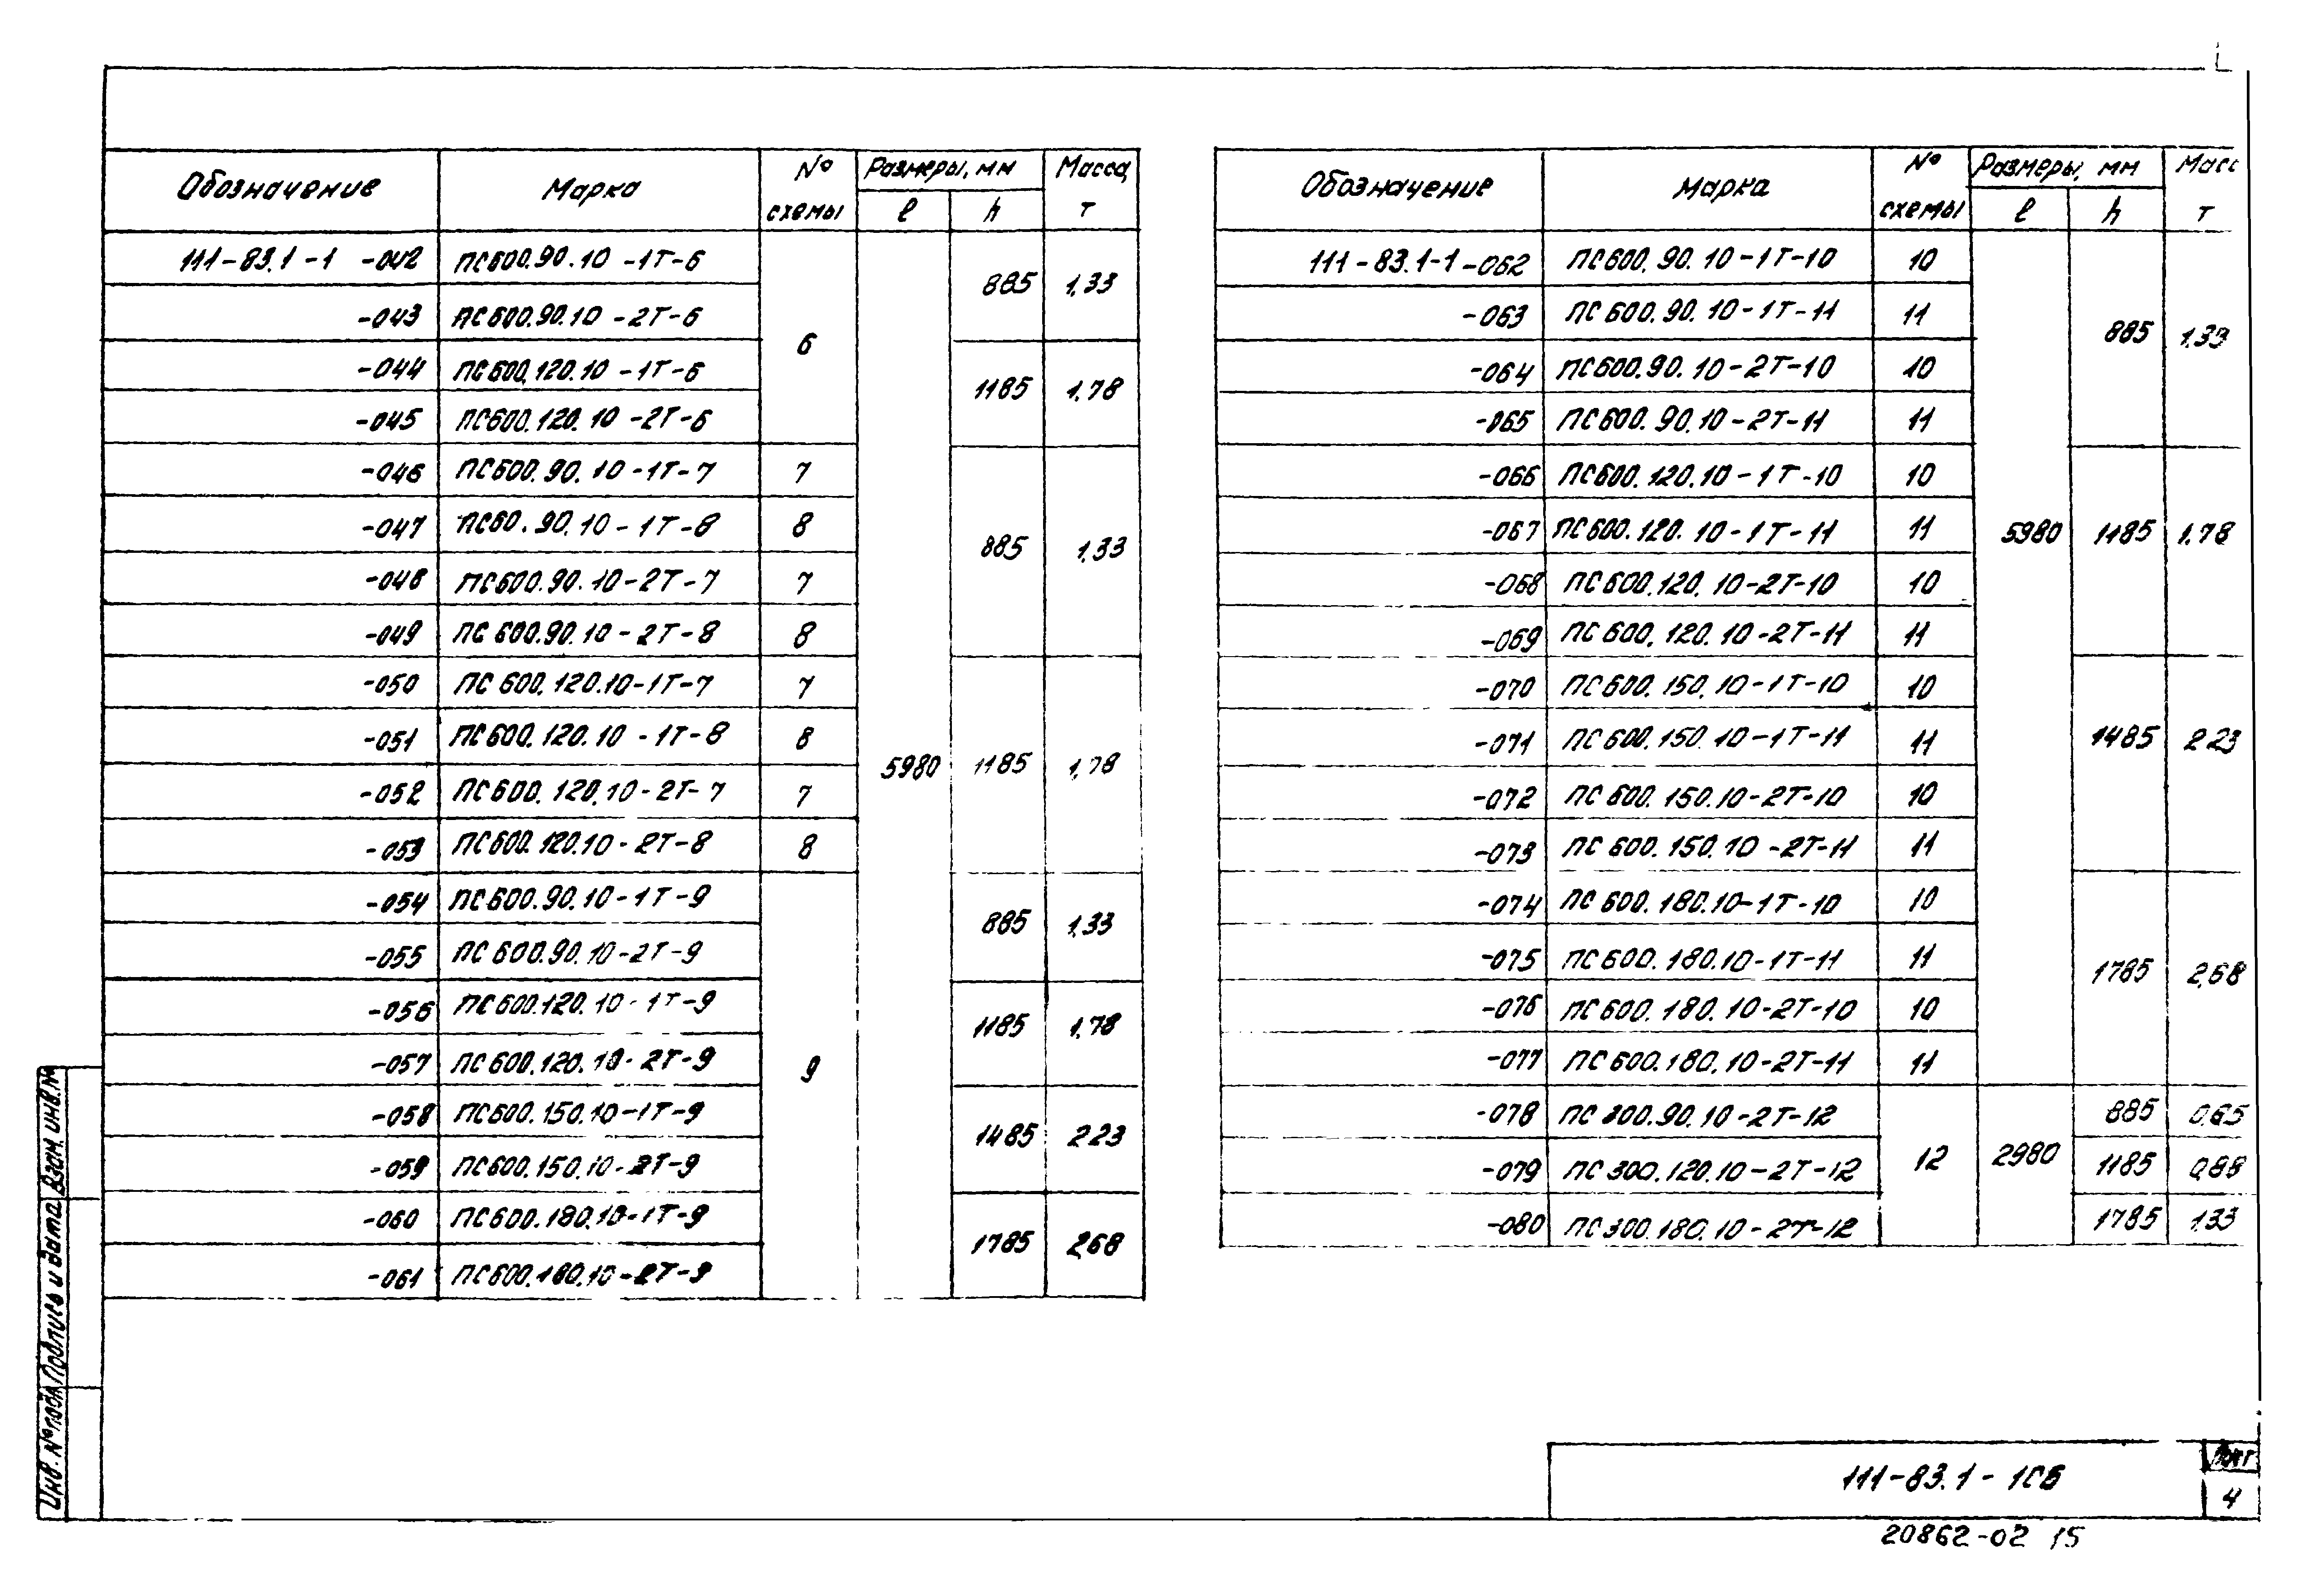 Обозначение Марка № схемы Размеры, мм Масса, т
l h
111-83.1-1 -042 ПС600.90.10-1Т-6 6 5980 885 1,33
-043 ПС600.90.10-2Т-6
-044 ПС600.120.10-1Т-6 1185 1,78
-045 ПС600.120.10-2Т-6
-046 ПС600.90.10-1Т-7 7 885 1,33
-047 ПС60.90.10-1Т-8 8
-048 ПС600.90.10-2Т-7 7
-049 ПС600.90.10-2Т-8 8
-050 ПС600.120.10-1Т-7 7 1185 1,78
-051 ПС600.120.10-1Т-8 8
-052 ПС600.120.10-2Т-7 7
-053 ПС600.120.10-2Т-8 8
-054 ПС600.90.10-1Т-9 9 885 1,33
-055 ПС600.90.10-2Т-9
-056 ПС600.120.10-1Т-9 1185 1,78
-057 ПС600.120.10-2Т-9
-058 ПС600.150.10-1Т-9 1485 2,23
-059 ПС600.150.10-2Т-9
-060 ПС600.180.10-1Т-9 1785 2,68
-061 ПС600.180.10-2Т-9
Обозначение Марка № схемы Размеры, мм Масс т
l h
111-83.1-1-062 ПС600.90.10-1Т-10 10 5980 885 1,33
-063 ПС600.90.10-1Т-11 11
-064 ПС600.90.10-2Т-10 10
-065 ПС600.90.10-2Т-11 11
-066 ПС600.120.10-1Т-10 10 1185 1,78
-067 ПС600.120.10-1Т-11 11
-068 ПС600.120.10-2Т-10 10
-069 ПС600.120.10-2Т-11 11
-070 ПС600.150.10-1Т-10 10 1485 2,23
-071 ПС600.150.10-1Т-11 11
-072 ПС600.150.10-2Т-10 10
-073 ПС600.150.10-2Т-11 11
-074 ПС600.180.10-1Т-10 10 1785 2,68
-075 ПС600.180.10-1Т-11 11
-076 ПС600.180.10-2Т-10 10
-077 ПС600.180.10-2Т-11 11
-078 ПС300.90.10-2Т-12 12 2980 885 0,65
-079 ПС300.120.10-2Т-12 1185 0,88
-080 ПС300.180.10-2Т-12 1785 1,33
Инв. № подл. Подпись и дата Взам. инв. №
111-83.1-1СБ
Лист
4
20862-02 15